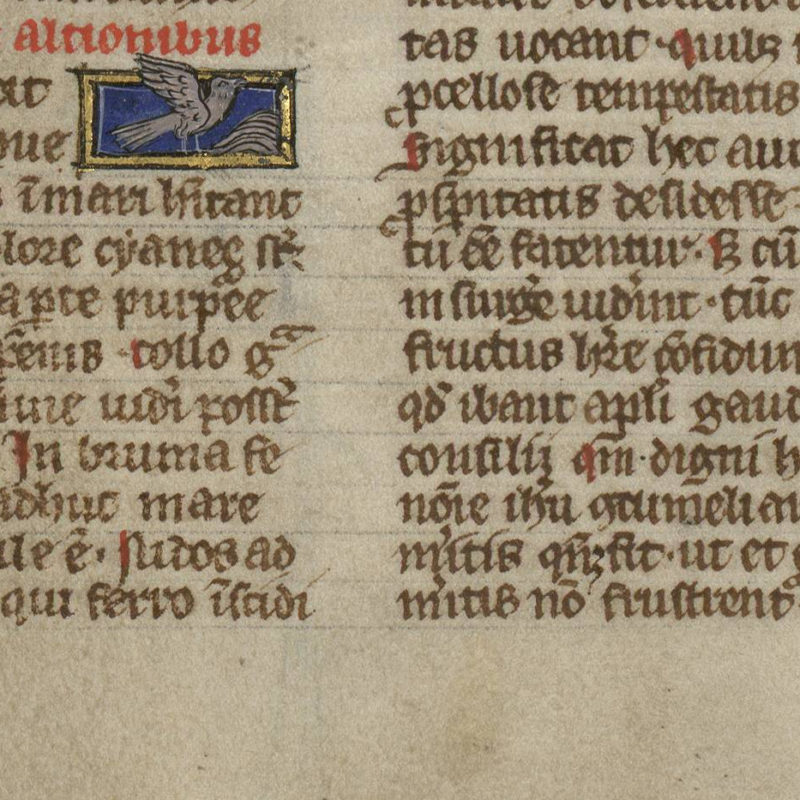 altionibus
at
que
ī mari hītant
lore cyaneę st̄
a ꝑte purpēe
collo
ime uidi posst̄
In bruma fe
adhuc mare
ile ē. Nidos ad
qui ferro īscidi
tas uocant. quib;
ꝓcellose tempestatis
Significat hec aut
ꝓsꝑitatis desidesse
tū eē fatentur. S; cū
insurgē̄ uiderint. tūc
fructus hr̄e ꝯfidun
qd̄ ibant apl̄i gaud
consilij qm̄. digni h
nōīe ih̄u ꝯtumeliam
mītis fit. ut et
mītis nō frustrent᷑